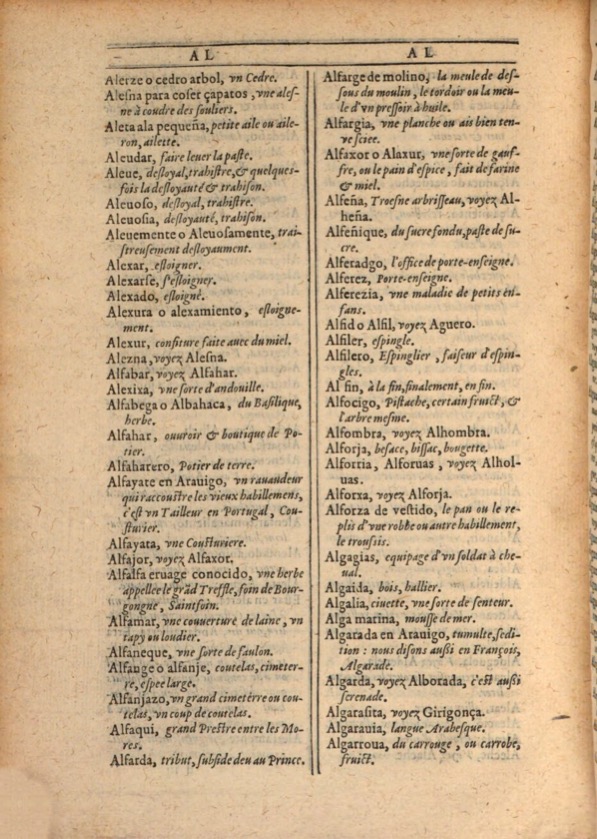 AL
AL
Alerze o cedro arbol, vn Cedre.
Alesna para coser çapatos, vne ales-
ne à coudre des souliers.
Aleta ala pequeña, petite aile ou aile-
ron, ailette.
Aleudar, faire leuer la paste.
Aleue, desloyal, trahistre, & quelques-
fois la desloyauté & trahison.
Aleuoso, desloyal, trahistre.
Aleuosia, desloyauté, trahison.
Aleuemente o Aleuosamente, trai-
streusement desloyaument.
Alexar, esloigner.
Alexarse, s'esloigner.
Alexado, esloigné.
Alexura o alexamiento, esloigue-
ment.
Alexur, confiture faite auec du miel.
Alezna, voyez Alesna.
Alfabar, voyez Alfahar.
Alexixa, vne sorte d'andouille.
Alfabega o Albahaca, du Basilique,
herbe.
Alfahar, ouuroir & boutique de Po-
tier.
Alfaharero, Potier de terre.
Alfayate en Arauigo, vn rauaudeur
qui raccoustre les vieux habillemens,
c'est vn Tailleur en Portugal, Cou-
sturier.
Alfayata, vne Cousturiere.
Alfajor, voyez Alfaxor.
Alfalfa eruage conocido, vne herbe
appellée le grãd Treffle, foin de Bour-
gongne, Saintfoin.
Alfamar, vne couuerture de laine, vn
tapy ou loudier.
Alfaneque, vne sorte de faulon.
Alfange o alfanje, coutelas, cimeter-
re, espee large.
Alfanjazo, vn grand cimeterre ou cou-
telas, vn coup de coutelas.
Alfaqui, grand Prestre entre les Mo-
res.
Alfarda, tribut, subside deu au Prince.
Alfarge de molino, la meule de des-
sous du moulin, le tordoir ou la meu-
le d'vn pressoir à huile.
Alfargia, vne planche ou ais bien ten-
ve sciee.
Alfaxor o Alaxur, vne sorte de gauf-
fre, ou le pain d'espice, fait de farine
& miel.
Alfeña, Troesne arbrisseau, voyez Al-
heña.
Alfeñique, du sucre fondu, paste de su-
cre.
Alferadgo, l'office de porte-enseigne.
Alferez, Porte-enseigne.
Alferezia, vne maladie de petits en-
fans.
Alfid o Alfil, voyez Aguero.
Alfiler, espingle.
Alfilero, Espinglier, faiseur d'espin-
gles.
Al fin, à la fin, finalement, en fin.
Alfocigo, Pistache, certain fruict, &
l'arbre mesme.
Alfombra, voyez Alhombra.
Alforja, besace, bissac, bougette.
Alforria, Alforuas, voyez Alhol-
uas.
Alforxa, voyez Alforja.
Alforza de vestido, le pan ou le re-
plis d'vue robbe ou autre habillement,
le troussis.
Algagias, equipage d'vn soldat à che-
ual.
Algaida, bois, hallier.
Algalia, ciuette, vne sorte de senteur.
Alga marina, mousse de mer.
Algarada en Arauigo, tumulte, sedi-
tion : nous disons aussi en François,
Algarade.
Algarda, voyez Alborada, c'est aussi
serenade.
Algarafita, voyez Girigonça.
Algarauia, langue Arabesque.
Algarroua, du carrouge, ou carrobe,
fruict.